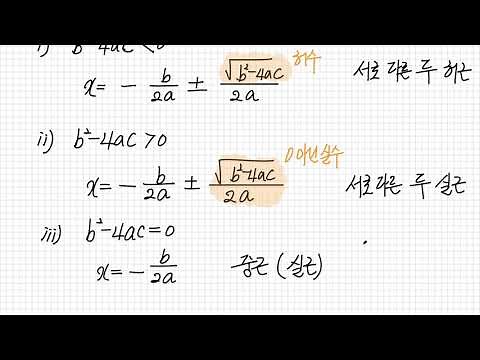 i) b²-4ac<0
x = - b/2a ± √(b²-4ac)/2a 허수 서로 다른 두 허근
ii) b²-4ac>0
x = - b/2a ± √(b²-4ac)/2a 0 아닌 실수 서로 다른 두 실근
iii) b²-4ac=0
x = - b/2a 중근 (실근)